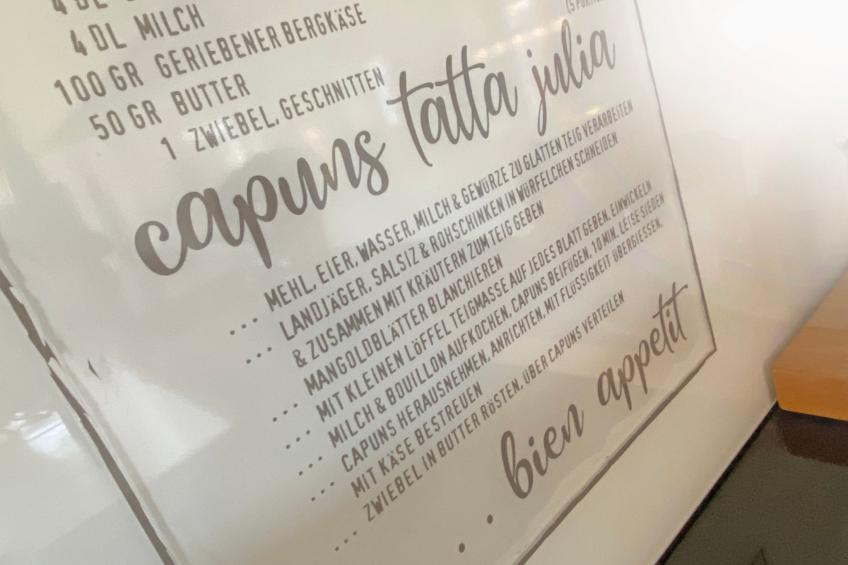 4 DL MILCH
100 GR GERIEBENER BERGKÄSE
50 GR BUTTER
1 ZWIEBEL, GESCHNITTEN
capuns tatta julia
... MEHL, EIER, WASSER, MILCH & GEWÜRZE ZU GLATTEN TEIG VERARBEITEN
... LANDJÄGER, SALSIZ & ROHSCHINKEN IN WÜRFELCHEN SCHNEIDEN
& ZUSAMMEN MIT KRÄUTERN ZUM TEIG GEBEN
... MANGOLDBLÄTTER BLANCHIEREN
... MIT KLEINEN LÖFFEL TEIGMASSE AUF JEDES BLATT GEBEN, EINWICKELN
... MILCH & BOUILLON AUFKOCHEN, CAPUNS BEIFÜGEN, 10 MIN. LEISE SIEDEN
... CAPUNS HERAUSNEHMEN, ANRICHTEN, MIT FLÜSSIGKEIT ÜBERGIESSEN,
MIT KÄSE BESTREUEN
... ZWIEBEL IN BUTTER RÖSTEN, ÜBER CAPUNS VERTEILEN
.. bien appetit